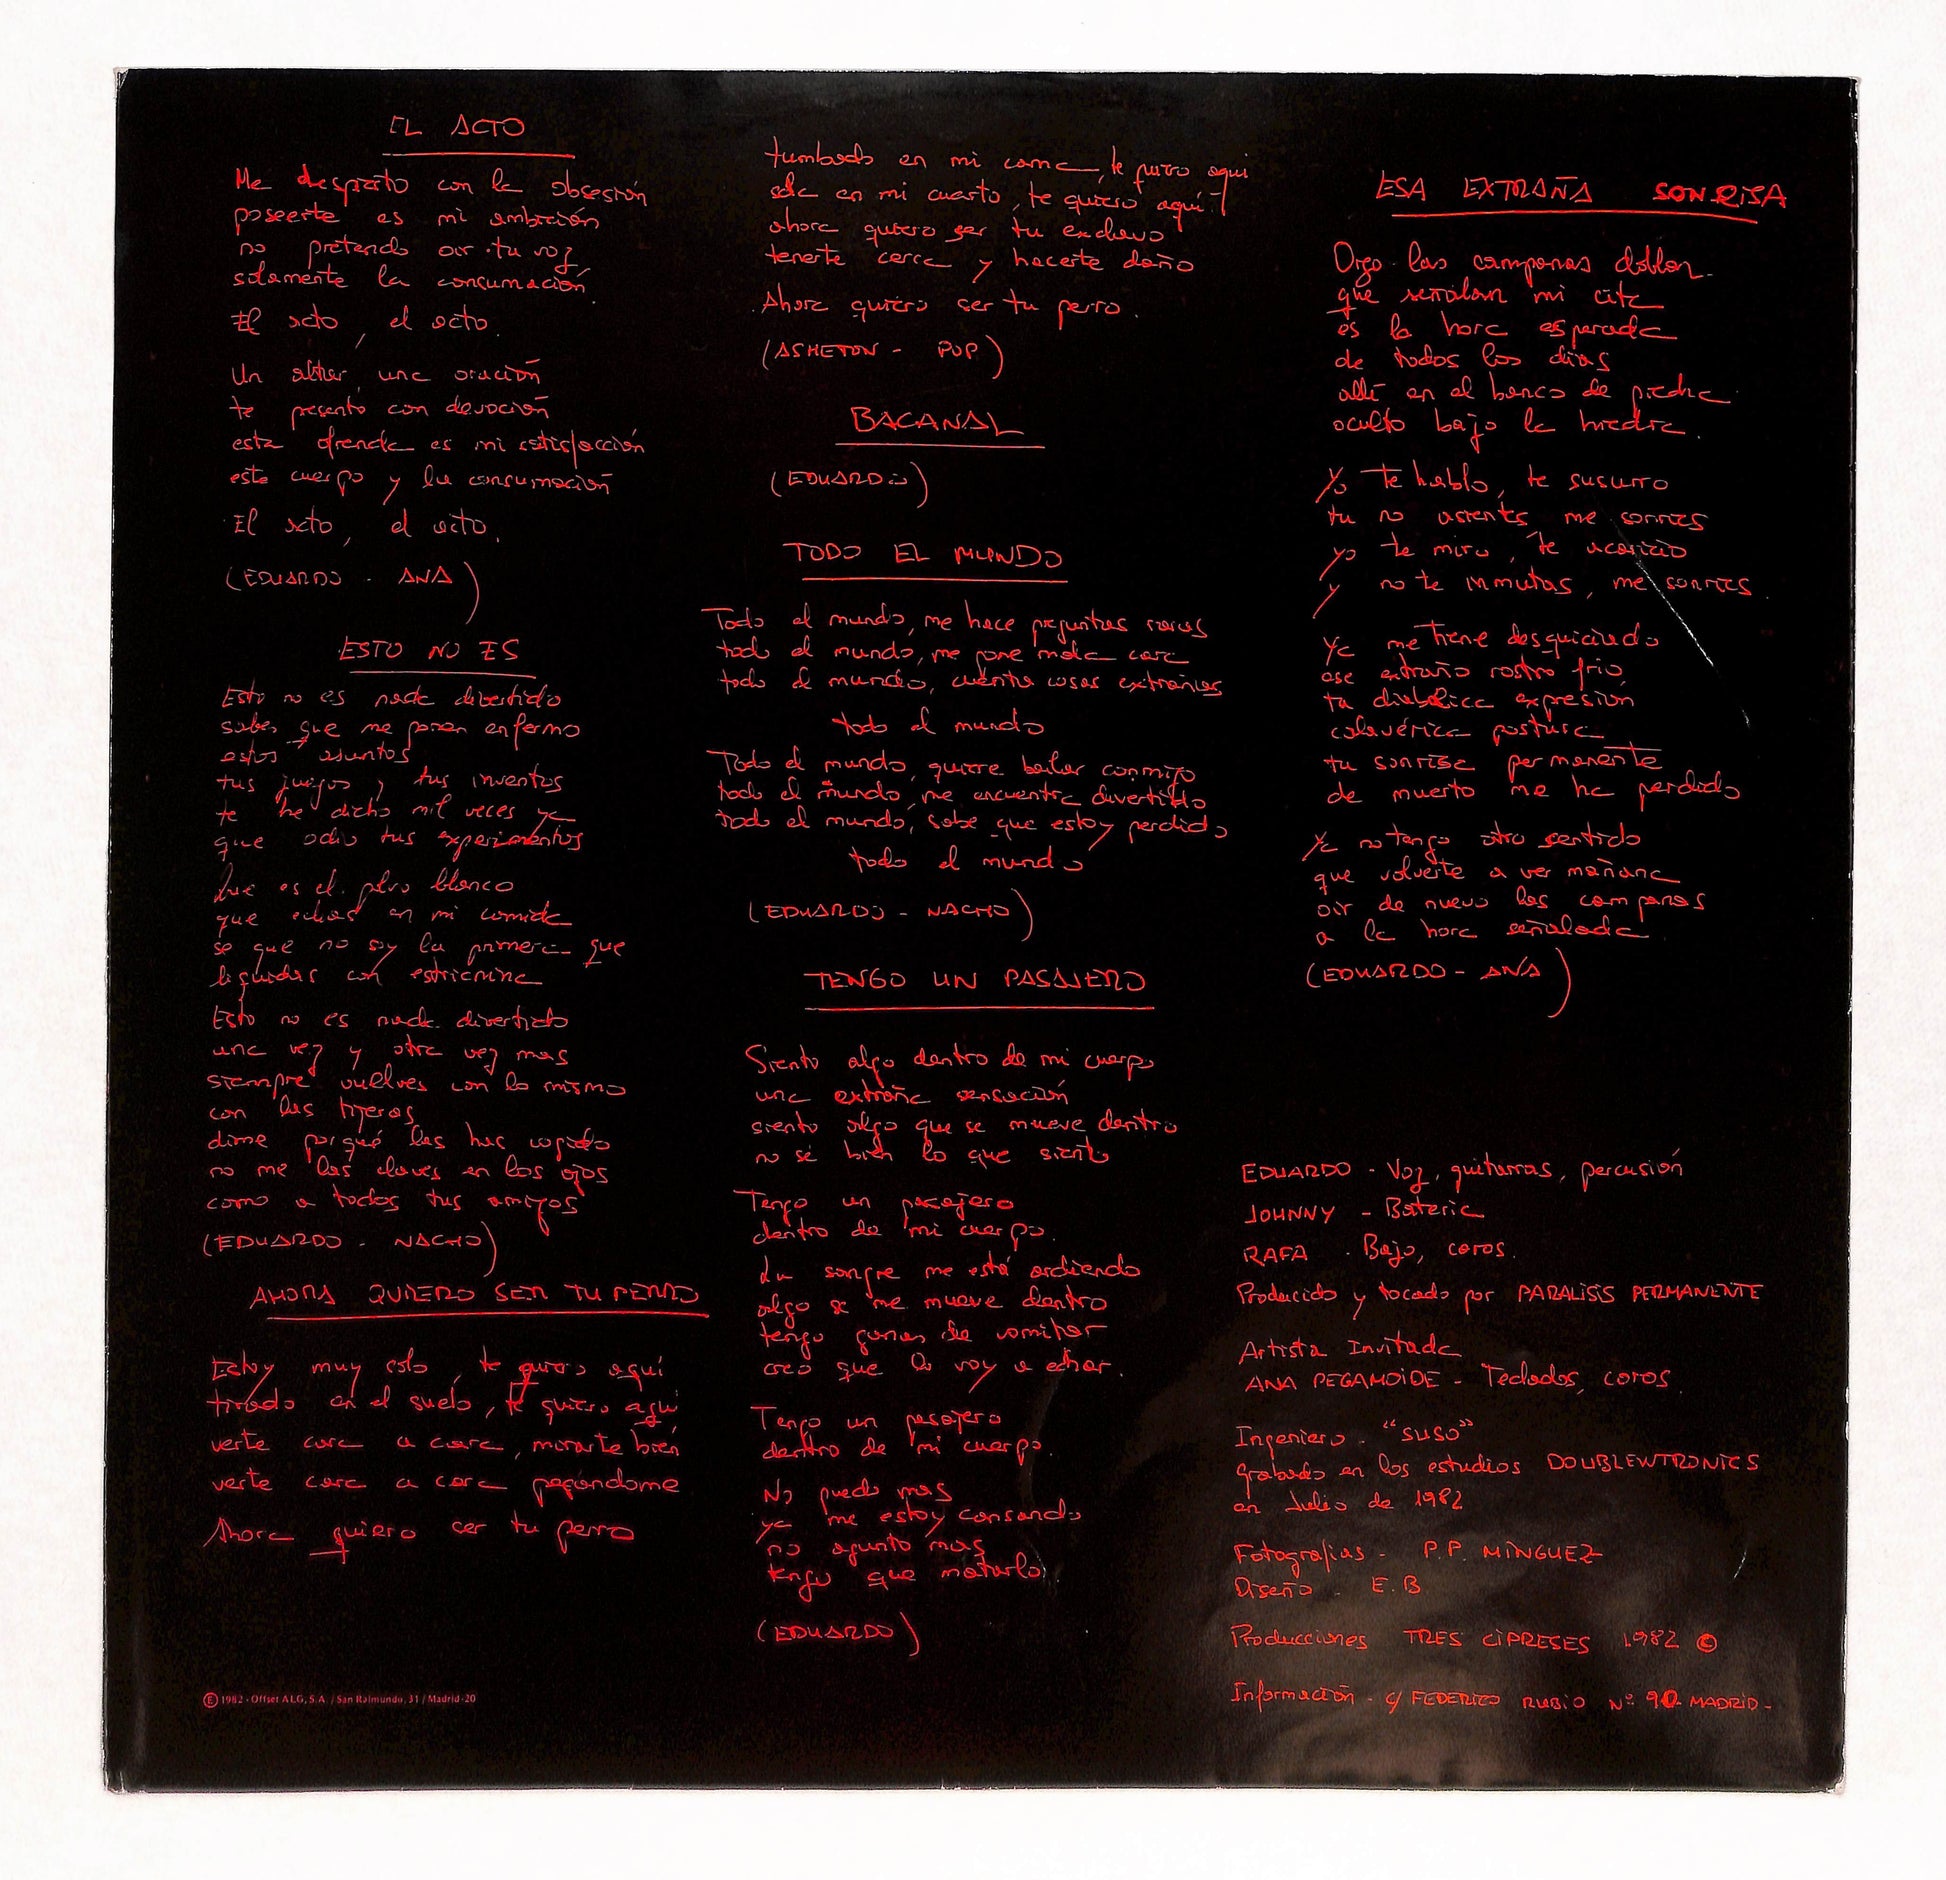 EL ACTO
Me despierto con la obsesión
poseerte es mi ambición
no pretendo oir tu voz
solamente la consumación.
El acto, el acto.
Un altar, una oración
te presento con devoción
esta ofrenda es mi satisfacción
este cuerpo y la consumación
El acto, el acto.
(EDUARDO - ANA)
ESTO NO ES
Esto no es nada divertido
sabes que me ponen enfermo
estos asuntos
tus juegos, tus inventos
te he dicho mil veces ya
que odio tus experimentos
Que es el polvo blanco
que echas en mi comida
se que no soy la primera que
liquidas con estricnina
Esto no es nada divertido
una vez y otra vez mas
siempre vuelves con lo mismo
con las tijeras
dime porqué las has cogido
no me las claves en los ojos
como a todos tus amigos
(EDUARDO - NACHO)
AHORA QUIERO SER TU PERRO
Estoy muy solo, te quiero aquí
tirado en el suelo, te quiero aquí
verte cara a cara, mirarte bien
verte cara a cara pegándome
Ahora quiero ser tu perro
Ⓔ 1982 - Offset ALG, S.A. / San Raimundo, 31 / Madrid-20
tumbado en mi cama, te quiero aqui
sola en mi cuarto, te quiero aquí
ahora quiero ser tu esclavo
tenerte cerca y hacerte daño
Ahora quiero ser tu perro.
(ASHETON - POP)
BACANAL
(EDUARDO)
TODO EL MUNDO
Todo el mundo, me hace preguntas raras
todo el mundo, me pone mala cara
todo el mundo, cuenta cosas extrañas
todo el mundo
Todo el mundo, quiere bailar conmigo
todo el mundo, me encuentra divertido
todo el mundo, sabe que estoy perdido
todo el mundo
(EDUARDO - NACHO)
TENGO UN PASAJERO
Siento algo dentro de mi cuerpo
una extraña sensación
siento algo que se mueve dentro
no sé bien lo que siento
Tengo un pasajero
dentro de mi cuerpo.
La sangre me está ardiendo
algo se me mueve dentro
tengo ganas de vomitar
creo que lo voy a echar.
Tengo un pasajero
dentro de mi cuerpo.
No puedo mas
ya me estoy cansando
no aguanto mas
tengo que matarlo.
(EDUARDO)
ESA EXTRAÑA SONRISA
Oigo las campanas doblar
que señalan mi cita
es la hora esperada
de todos los dias
allí en el banco de piedra
oculto bajo la hiedra.
Yo te hablo, te susurro
tu no asientes, me sonries
yo te miro, te acaricio
y no te inmutas, me sonries.
Ya me tiene desquiciado
ese extraño rostro frio
tu diabólica expresión
calavérica postura
tu sonrisa permanente
de muerto me ha perdido
Ya no tengo otro sentido
que volverte a ver mañana
oir de nuevo las campanas
a la hora señalada
(EDUARDO - ANA)
EDUARDO - Voz, guitarras, percusión
JOHNNY - Bateria
RAFA - Bajo, coros.
Producido y tocado por PARALISIS PERMANENTE
Artista Invitada
ANA PEGAMOIDE - Teclados, coros.
Ingeniero - "SUSO"
grabado en los estudios DOUBLEWTRONICS
en Julio de 1982
Fotografias - P.P. MINGUEZ
Diseño - E.B
Producciones TRES CIPRESES 1.982 ©
Información - c/ FEDERICO RUBIO Nº 90 MADRID-